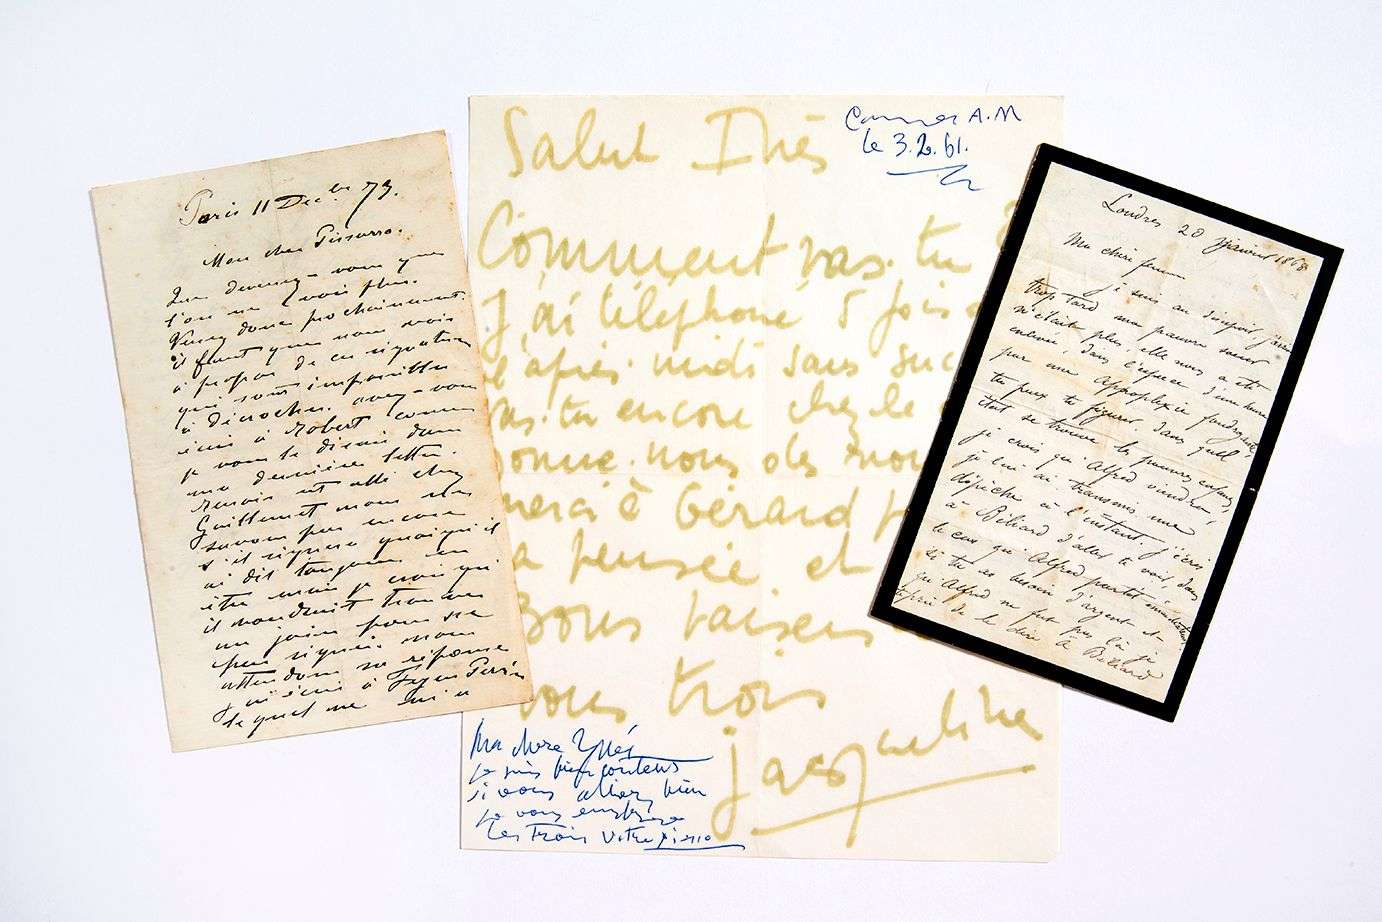 Paris 11 Dec.bre 73.
Mon cher Pissarro.
Que devenez-vous que
l'on ne vous voit plus.
Venez donc prochainement.
il faut que nous
à propos de ces signatures
qui sont impossibles
à décrocher. avez-vous
écrit à Robert comme
je vous le disais dans
ma dernière lettre.
Renoir est allé chez
Guillemet nous ne
savons pas encore
s'il signera quoiqu'il
ai dit toujours
être mais je crois qu'
il voudrait trouver
un joint pour ne
pas signer. nous
attendons sa réponse
j'ai écrit à
lequel ne m'a
Salut Inès
Cannes A.M
le 3.2.61.
Comment vas-tu ?
J'ai téléphoné 5 fois
après midi sans suc
vas-tu encore chez le
donne-nous des nou
merci à Gérard p
a pensée et
Bons baisers
vous trois
Jacqueline
Ma chere Ynés
je suis bien content
si vous allez bien
je vous embrasse
les trois votre
Londres 20 janvier 1868
Ma chère femme
je suis au désespoir
trop tard ma pauvre soeur
n'était plus, elle nous a été
enlevée, dans l'espace d'une heure
par une appoplexie foudroyante
tu peux te figurer, dans quel
état se trouve les pauvres enfants,
je crois qu'Alfred viendra,
je lui ai transmis une
dépêche à l'instant, j'écris
à Béliard d'aller te voir, dans
le cas qu'Alfred partit
si tu as besoin d'argent et
qu'Alfred ne fut pas là je
te prie de le dire à Béliard